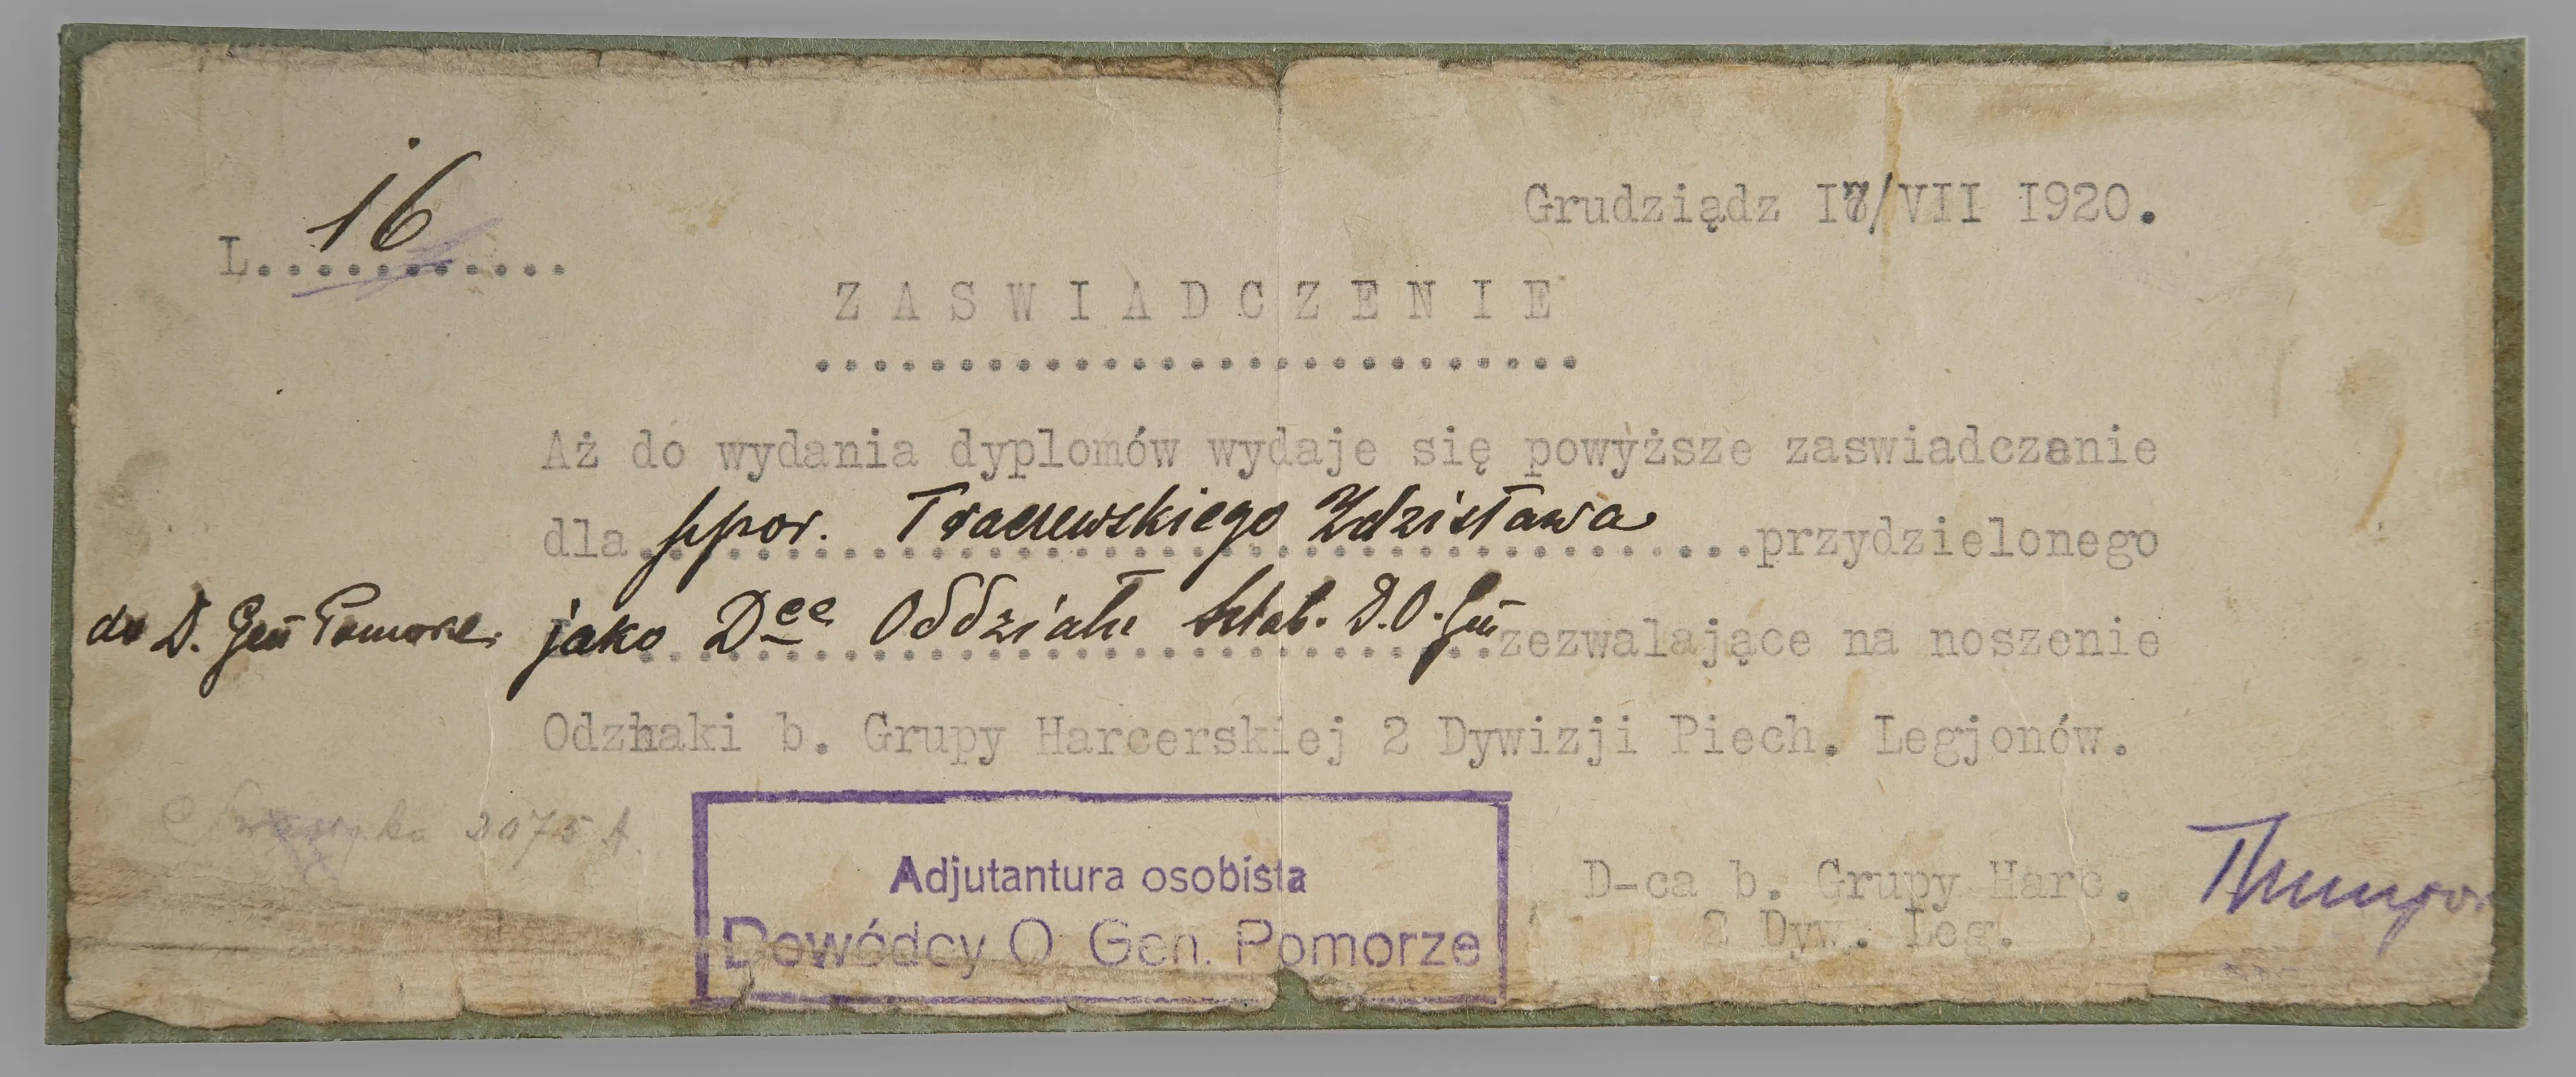 L. 16
Grudziądz 17/VII 1920.
ZASWIADCZENIE
Aż do wydania dyplomów wydaje się powyższe zaswiadczenie
dla ppor. Traczewskiego Zdzisława przydzielonego
do D. Gen Pomorze. jako Dce Oddziału Sztab. D.O.Gen zezwalające na noszenie
Odznaki b. Grupy Harcerskiej 2 Dywizji Piech. Legjonów.
2075
Adjutantura osobista
Dowódcy O. Gen. Pomorze
D-ca b. Grupy Harc.
2 Dyw. Leg.